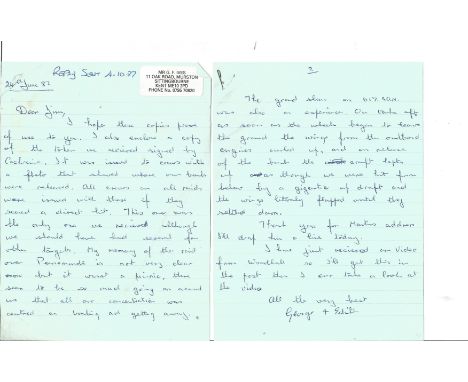 Reply Sent 4.10.87
MR G. F. IVES
11 OAK ROAD, MURSTON
SITTINGBOURNE
KENT ME10 3PD
PHONE No. 0795
24th June 87
Dear Jim,
I hope these copies prove
of use to you. I also enclose a copy
of the letter we received signed by
Cochrane. It was issued to crews with
a photo that showed where our bombs
were released. All crews on all raids
were issued with these if they
scored a direct hit. This one was
the only one we received although
we should have had several for
other targets. My memory of the raid
over Peenemunde is not very clear
now but it wasn't a picnic, there
seem to be so much going on around
us that all our concentration was
centred on bombing and getting away.
2
The grand slam on
was also an experience. On take off
as soon as the wheels began to leave
the ground the wings from the outboard
engines curled up, and on release
of the bomb the aircraft leapt
up as though we were hit from
below by a gigantic up draft and
the wings literally flapped until they
settled down.
Thank you for address
I'll drop him a line today.
I have just received an video
from so I'll get this in
the post then I can take a look at
the video
All the very best
George + Edith